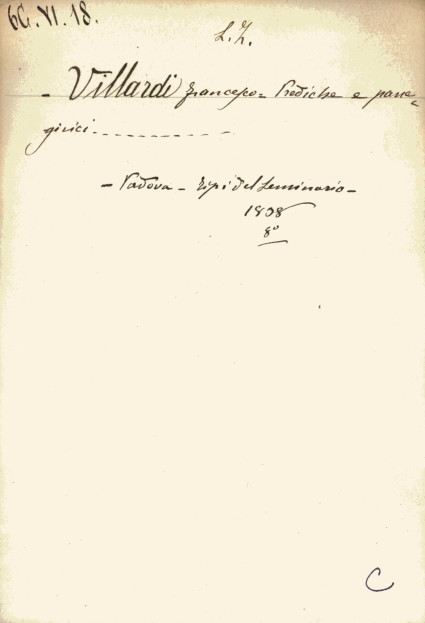 6C. VI. 18.
L. Z.
- Villardi Francesco = Prediche e pane=
girici - - - - - - - - - -
- Padova - Tipi del Seminario -
1838
8º
C